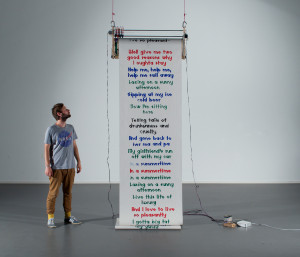 so pleasant
Well give me two
good reasons why
I oughta stay
Help me, help me,
help me sail away
Lazing on a sunny
afternoon
Sipping at my ice
cold beer
Now I'm sitting
here
Telling tales of
drunkenness and
cruelty
And gone back to
her ma and pa
My girlfriends run
off with my car
In a summertime
In a summertime
In a summertime
Lazing on a sunny
afternoon
Live this life of
luxury
And I love to live
so pleasantly
I gotta big fat